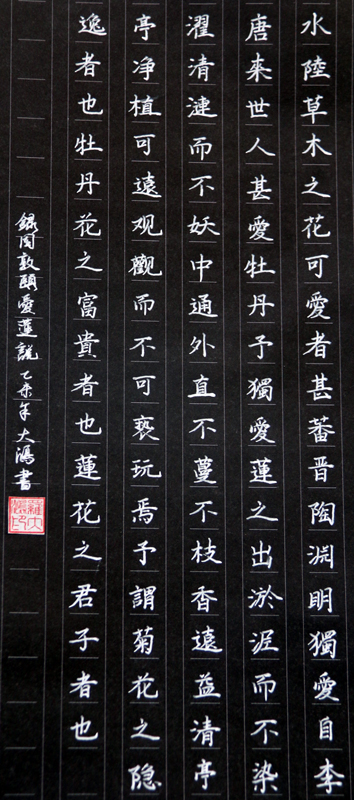 水陸草木之花可愛者甚蕃晋陶淵明獨愛自李
唐来世人甚愛牡丹予獨愛蓮之出淤泥而不染
濯清漣而不妖中通外直不蔓不枝香遠益清亭
亭净植可遠观觀而不可褻玩焉予謂菊花之隐
逸者也牡丹花之富貴者也蓮花之君子者也
録周敦頤愛蓮説乙未年大鴻書